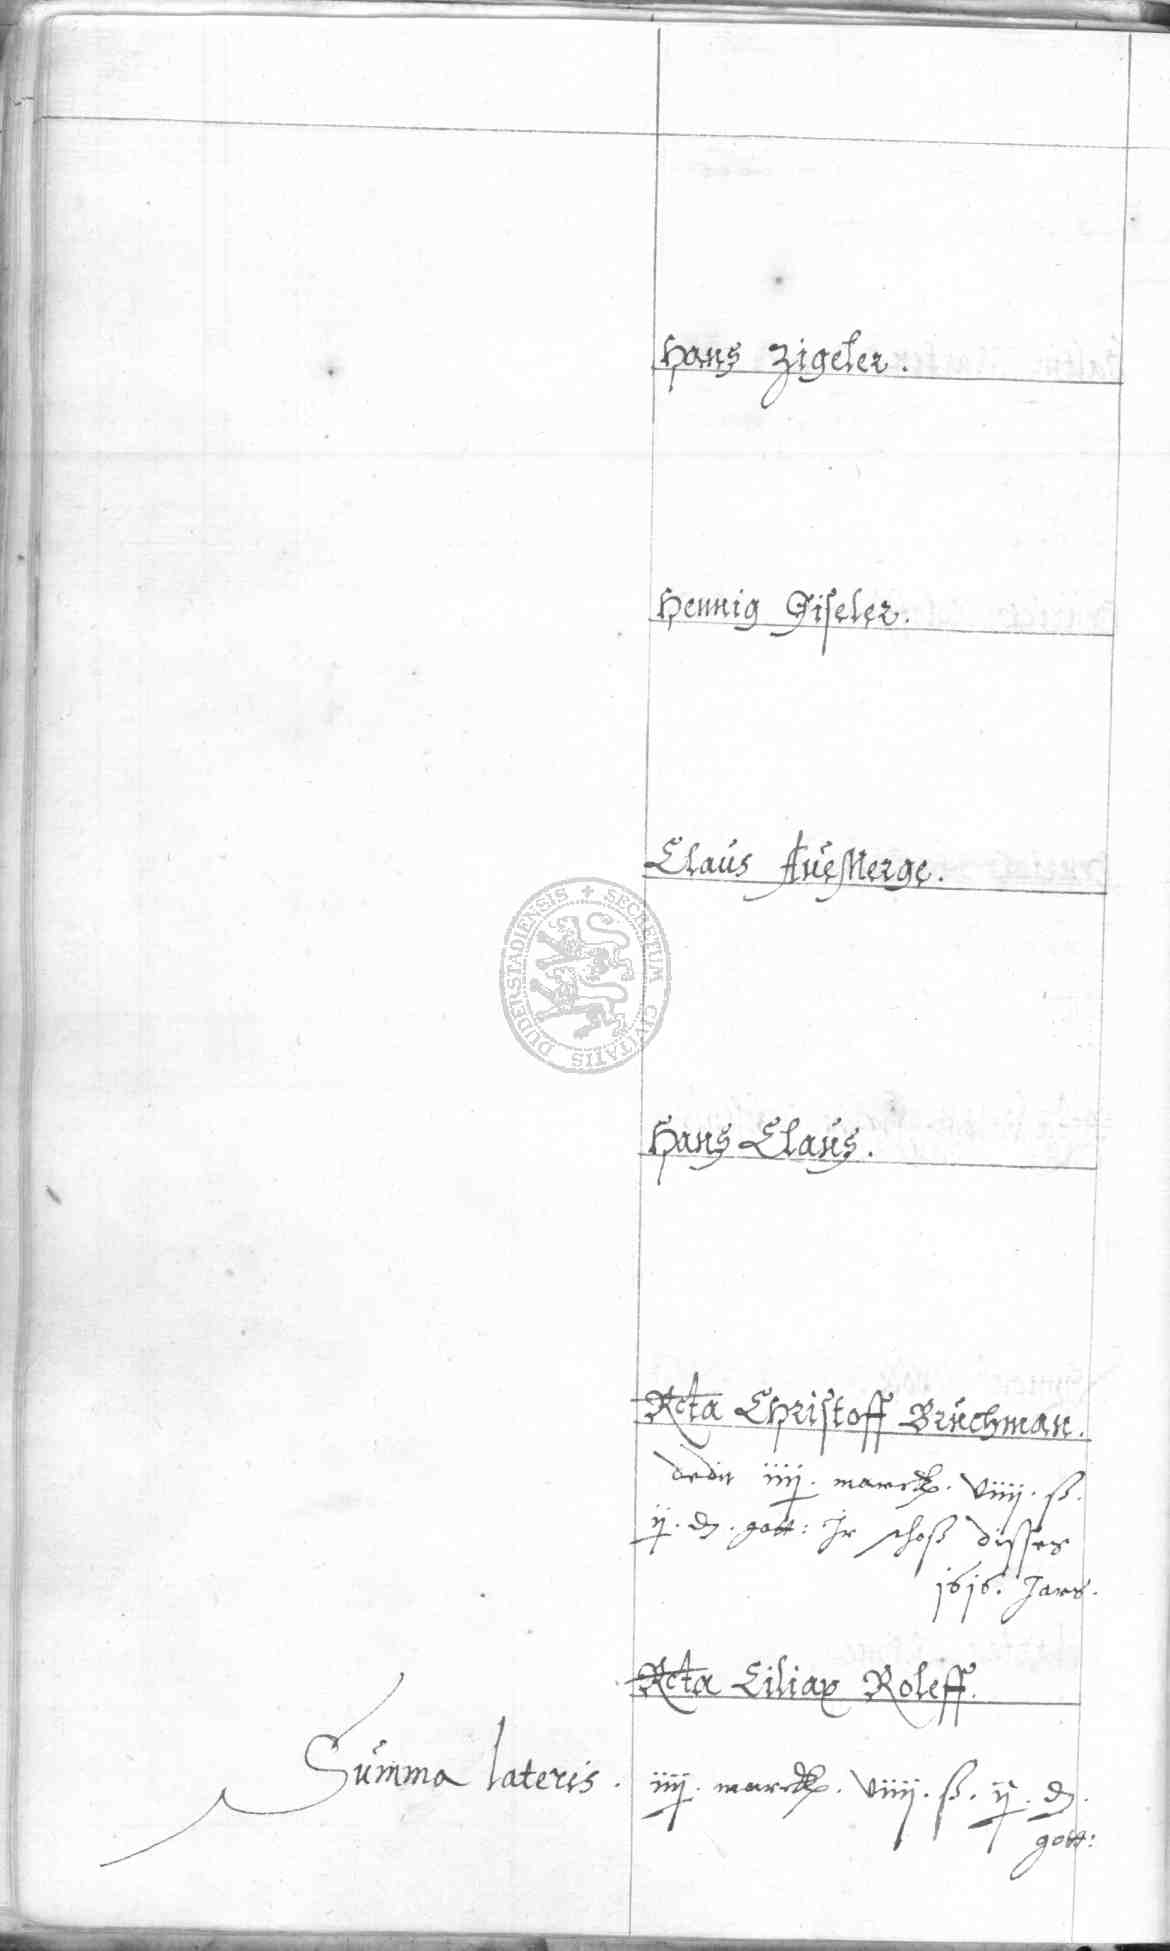 Hans Zigeler.
Hennig Giseler.
Claus AueMerge.
SECRETUM CIVITATIS DUDERSTADIENSIS
Hans Claus.
Rcta Christoff Bruchman.
dedit iiij. marck. viiij. ß.
ij. d. gott: Jr schoß disses
1616. Jars.
Rcta Ciliax Roleff.
Summa lateris. iiij. marck. viiij. ß. ij. d.
gott: